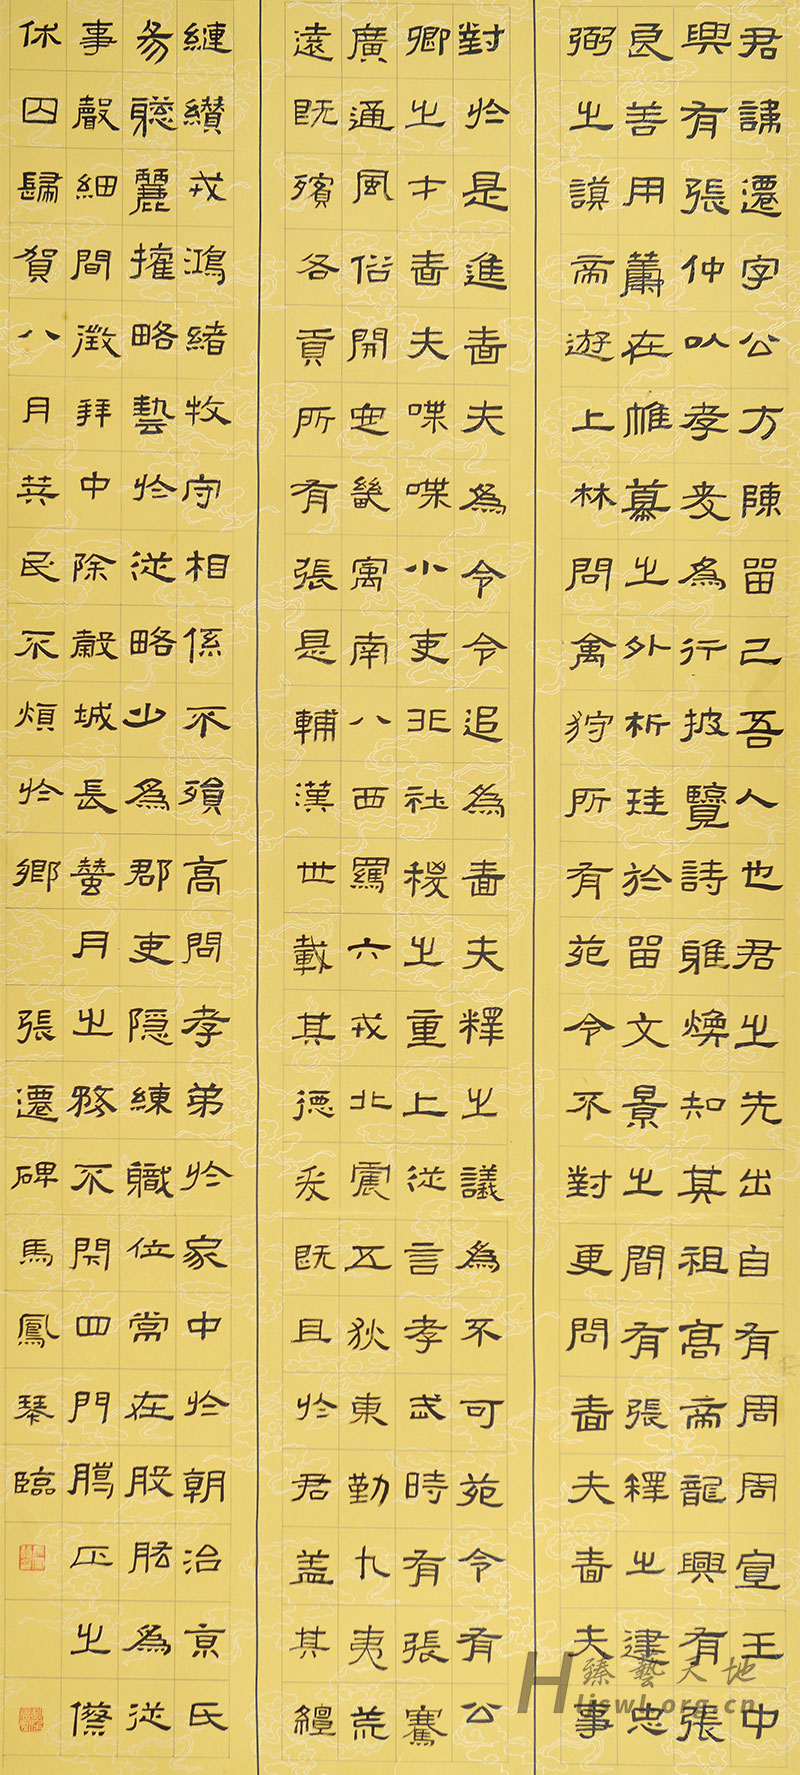 君諱遷字公方陳留己吾人也君之先出自有周周宣王中
興有張仲以孝友為行披覽詩雅煥知其祖高帝龍興有張
良善用籌在帷幕之外析珪於留文景之間有張釋之建忠
弼之謨帝遊上林問禽狩所有苑令不對更問嗇夫嗇夫事
對於是進嗇夫為令令追為嗇夫釋之議為不可苑令有公
卿之才嗇夫喋喋小吏非社稷之重上從言孝武時有張騫
廣通風俗開定畿寓南八西羈六戎北震五狄東勤九夷荒
遠既殯各貢所有張是輔漢世載其德爰既且於君蓋其繵
縺纘戎鴻緒牧守相係不殞高問孝弟於家中於朝治京氏
易聰麗權略藝於從略少為郡吏隱練職位常在股肱為從
事聲細間徵拜中除穀城長蠶月之務不閉四門臘正之僚
休囚歸賀八月筭民不煩於鄉 張遷碑馬鳳琴臨
臻藝天地
Hliswl.org.cn